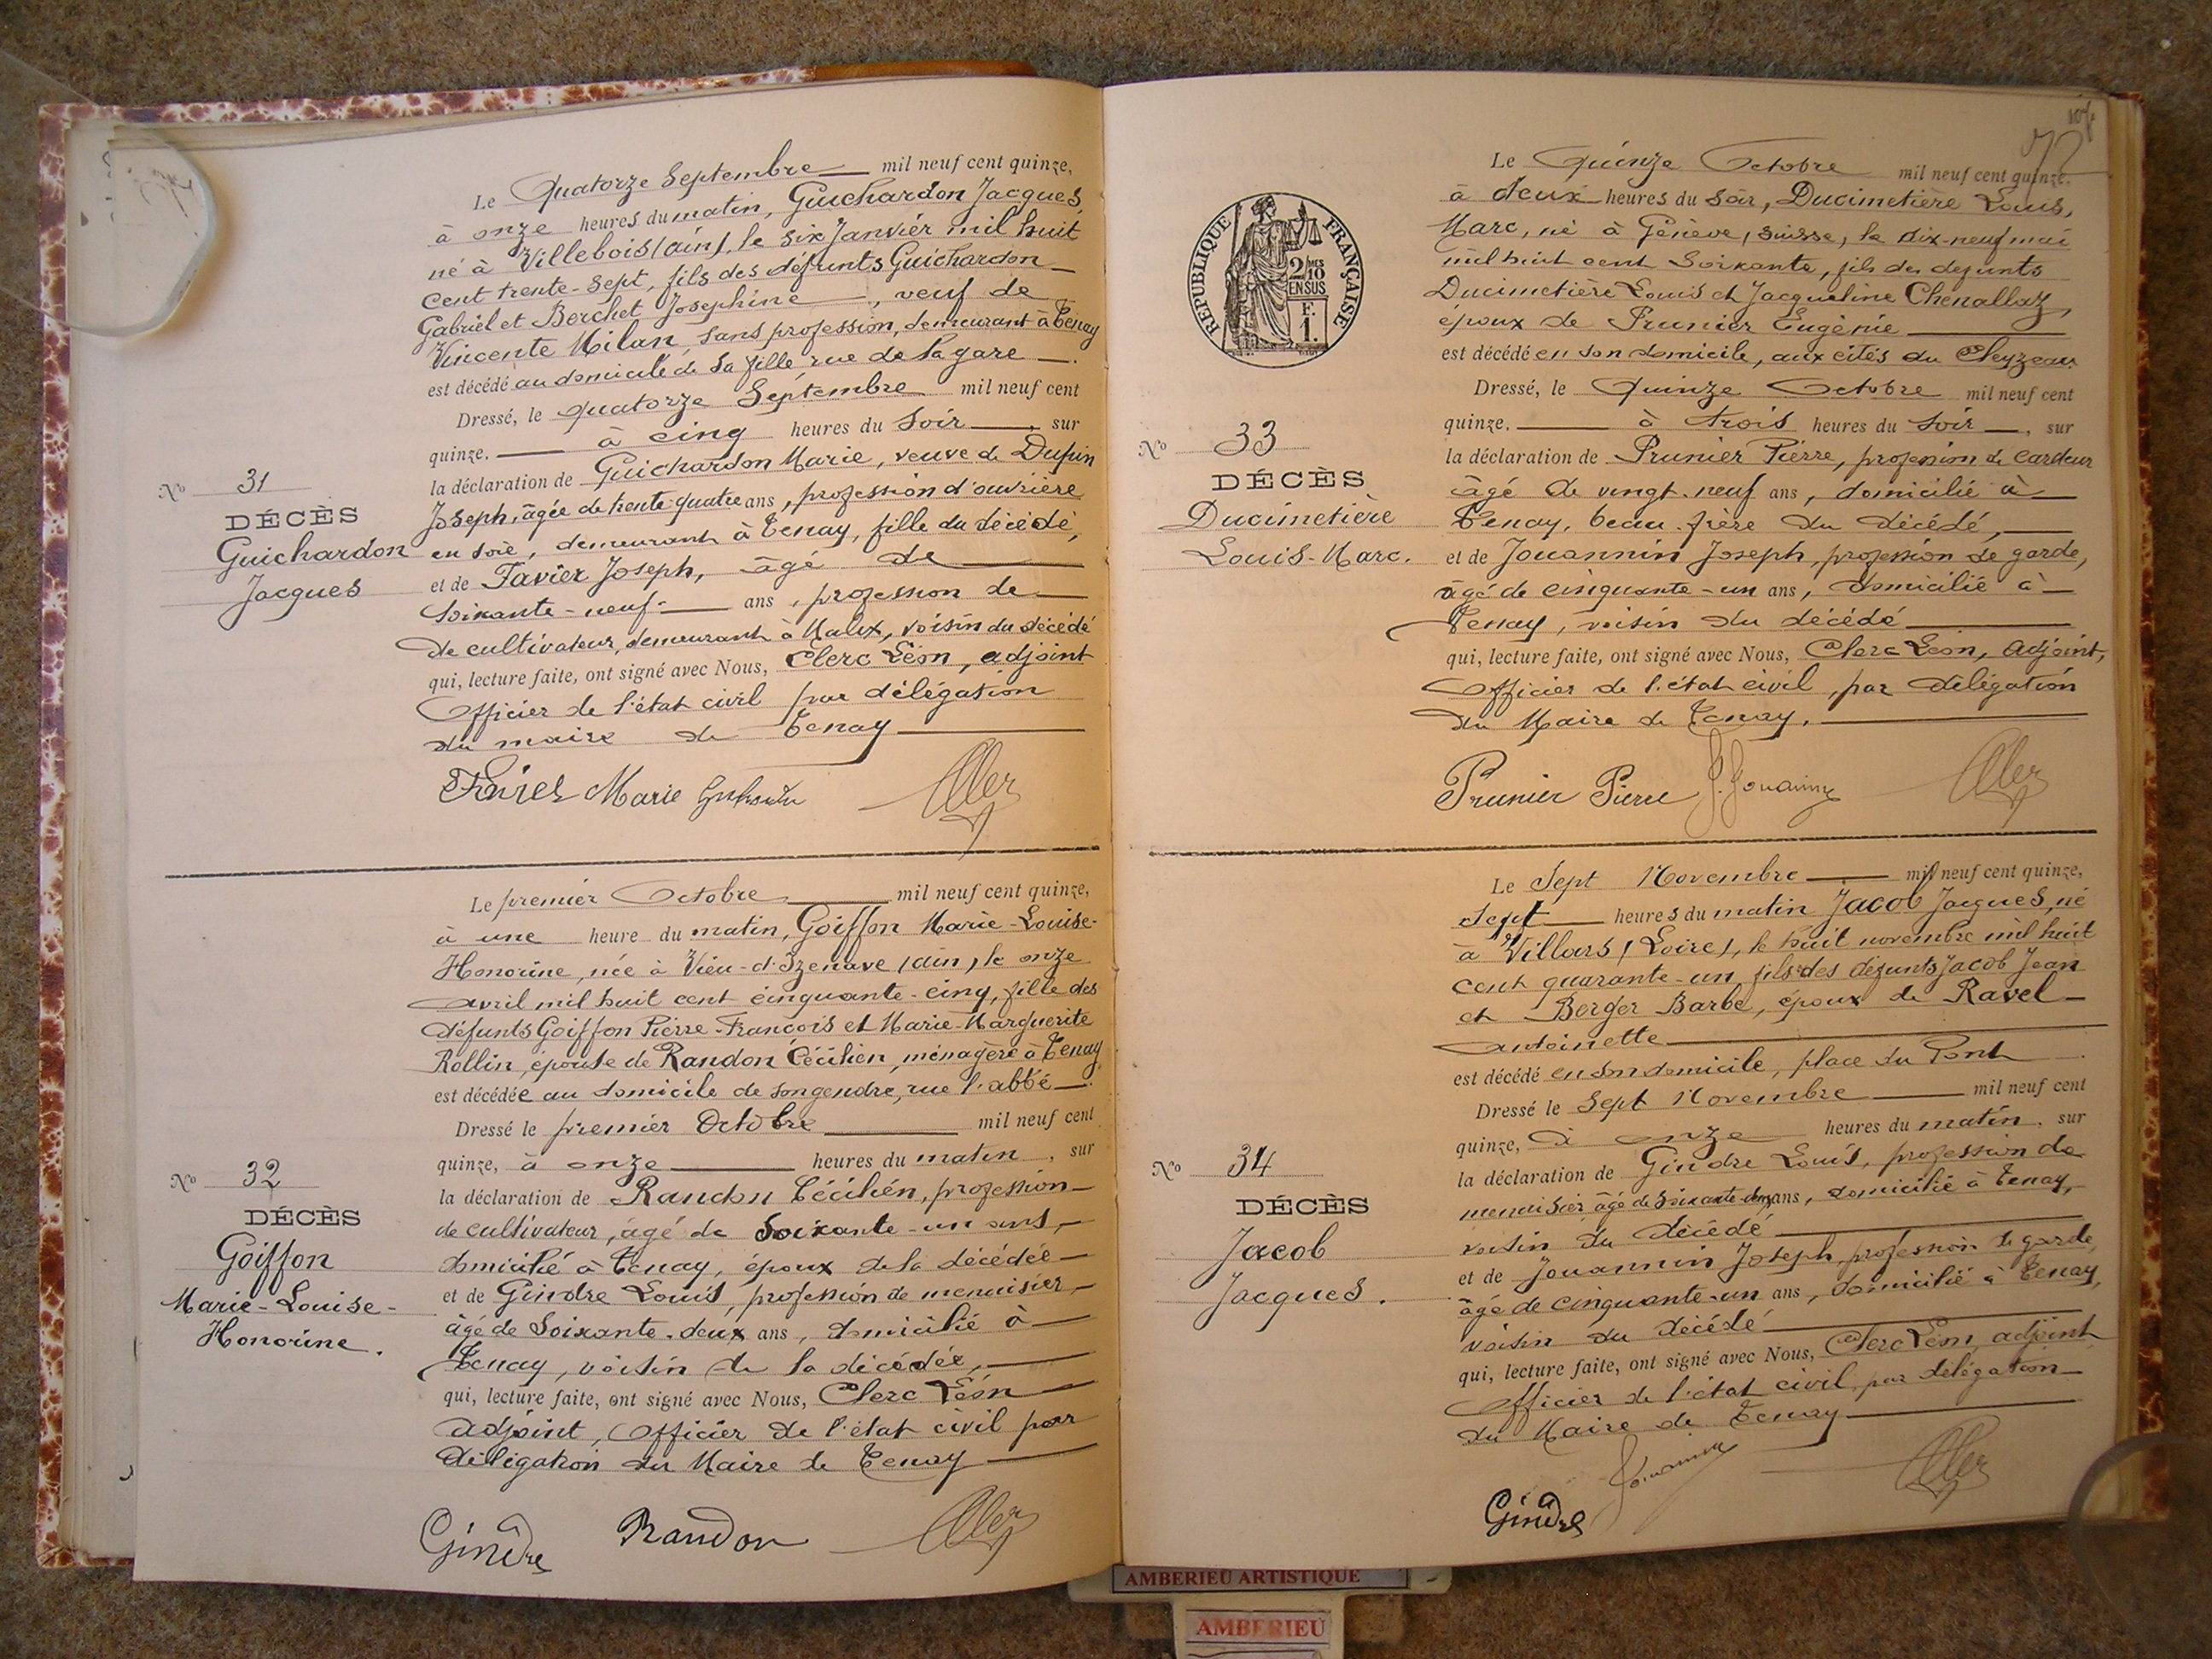 Le Quatorze Septembre mil neuf cent quinze,
à onze heures du matin, Guichardon Jacques,
né à Villebois (ain), le six Janvier mil huit
cent trente-sept, fils des défunts Guichardon
Gabriel et Berchet Josephine, veuf de
Vincente Milan, sans profession, demeurant à Tenay
est décédé au domicile de sa fille, rue de la gare.
Dressé, le quatorze Septembre mil neuf cent
quinze. à cinq heures du soir, sur
la déclaration de Guichardon Marie, veuve de Dupin
Joseph, âgée de trente-quatre ans, profession d'ouvrière
en soie, demeurant à Tenay, fille du décédé,
et de Favier Joseph, âgé de
soixante-neuf ans, profession de
de cultivateur, demeurant à Malix, voisin du décédé
qui, lecture faite, ont signé avec Nous, Clerc Léon, adjoint
Officier de l'état civil par délégation
du maire de Tenay
Favier Marie
No 31
DÉCÈS
Guichardon
Jacques
Le premier Octobre mil neuf cent quinze,
à une heure du matin, Goiffon Marie-Louise-
Honorine, née à Vieu-d'Izenave (ain), le onze
avril mil huit cent cinquante-cinq, fille des
défunts Goiffon Pierre-François et Marie-Marguerite
Rollin, épouse de Randon Cécilien, ménagère à Tenay
est décédée au domicile de son gendre, rue l'abbé.
Dressé le premier Octobre mil neuf cent
quinze, à onze heures du matin, sur
la déclaration de Randon Cécilien, profession
de cultivateur, âgé de Soixante-un ans,
domicilié à Tenay, époux de la décédée
et de Gindre Louis, profession de menuisier,
âgé de Soixante-deux ans, domicilié à
Tenay, voisin de la décédée,
qui, lecture faite, ont signé avec Nous, Clerc Léon
adjoint, Officier de l'état civil par
délégation du Maire de Tenay
Gindre Randon
No 32
DÉCÈS
Goiffon
Marie-Louise-
Honorine.
REPUBLIQUE FRANÇAISE
2/10 MES
EN SUS
F.
1.
Le Quinze Octobre mil neuf cent quinze,
à deux heures du soir, Ducimetière Louis,
Marc, né à Génève, Suisse, le dix-neuf mai
mil huit cent soixante, fils des defunts
Ducimetière Louis et Jacqueline Chenallaz,
epoux de Prunier Eugènie
est décédé en son domicile, aux cités du Cleyzeau.
Dressé, le Quinze Octobre mil neuf cent
quinze. à trois heures du soir, sur
la déclaration de Prunier Pierre, profession de cardeur
âgé de vingt-neuf ans, domicilié à
Tenay, beau-frère du décédé,
et de Jouannin Joseph, profession de garde,
âgé de cinquante-un ans, domicilié à
Tenay, voisin du décédé
qui, lecture faite, ont signé avec Nous, Clerc Léon, adjoint,
Officier de l'état civil, par délégation
du Maire de Tenay.
Prunier Pierre
No 33
DÉCÈS
Ducimetière
Louis-Marc.
Le Sept Novembre mil neuf cent quinze,
Sept heures du matin Jacob Jacques, né
à Villars (Loire), le huit novembre mil huit
cent quarante-un, fils des défunts Jacob Jean
et Berger Barbe, époux de Ravel
antoinette
est décédé en son domicile, place du Pont
Dressé le Sept Novembre mil neuf cent
quinze, à onze heures du matin, sur
la déclaration de Gindre Louis, profession de
menuisier âgé de soixante-deux ans, domicilié à Tenay,
voisin du décédé
et de Jouannin Joseph, profession de garde,
âgé de cinquante-un ans, domicilié à Tenay,
voisin du décédé
qui, lecture faite, ont signé avec Nous, Clerc Léon, adjoint
Officier de l'état civil, par délégation
du Maire de Tenay
Gindre
No 34
DÉCÈS
Jacob
Jacques.
AMBERIEU ARTISTIQUE
AMBERIEU